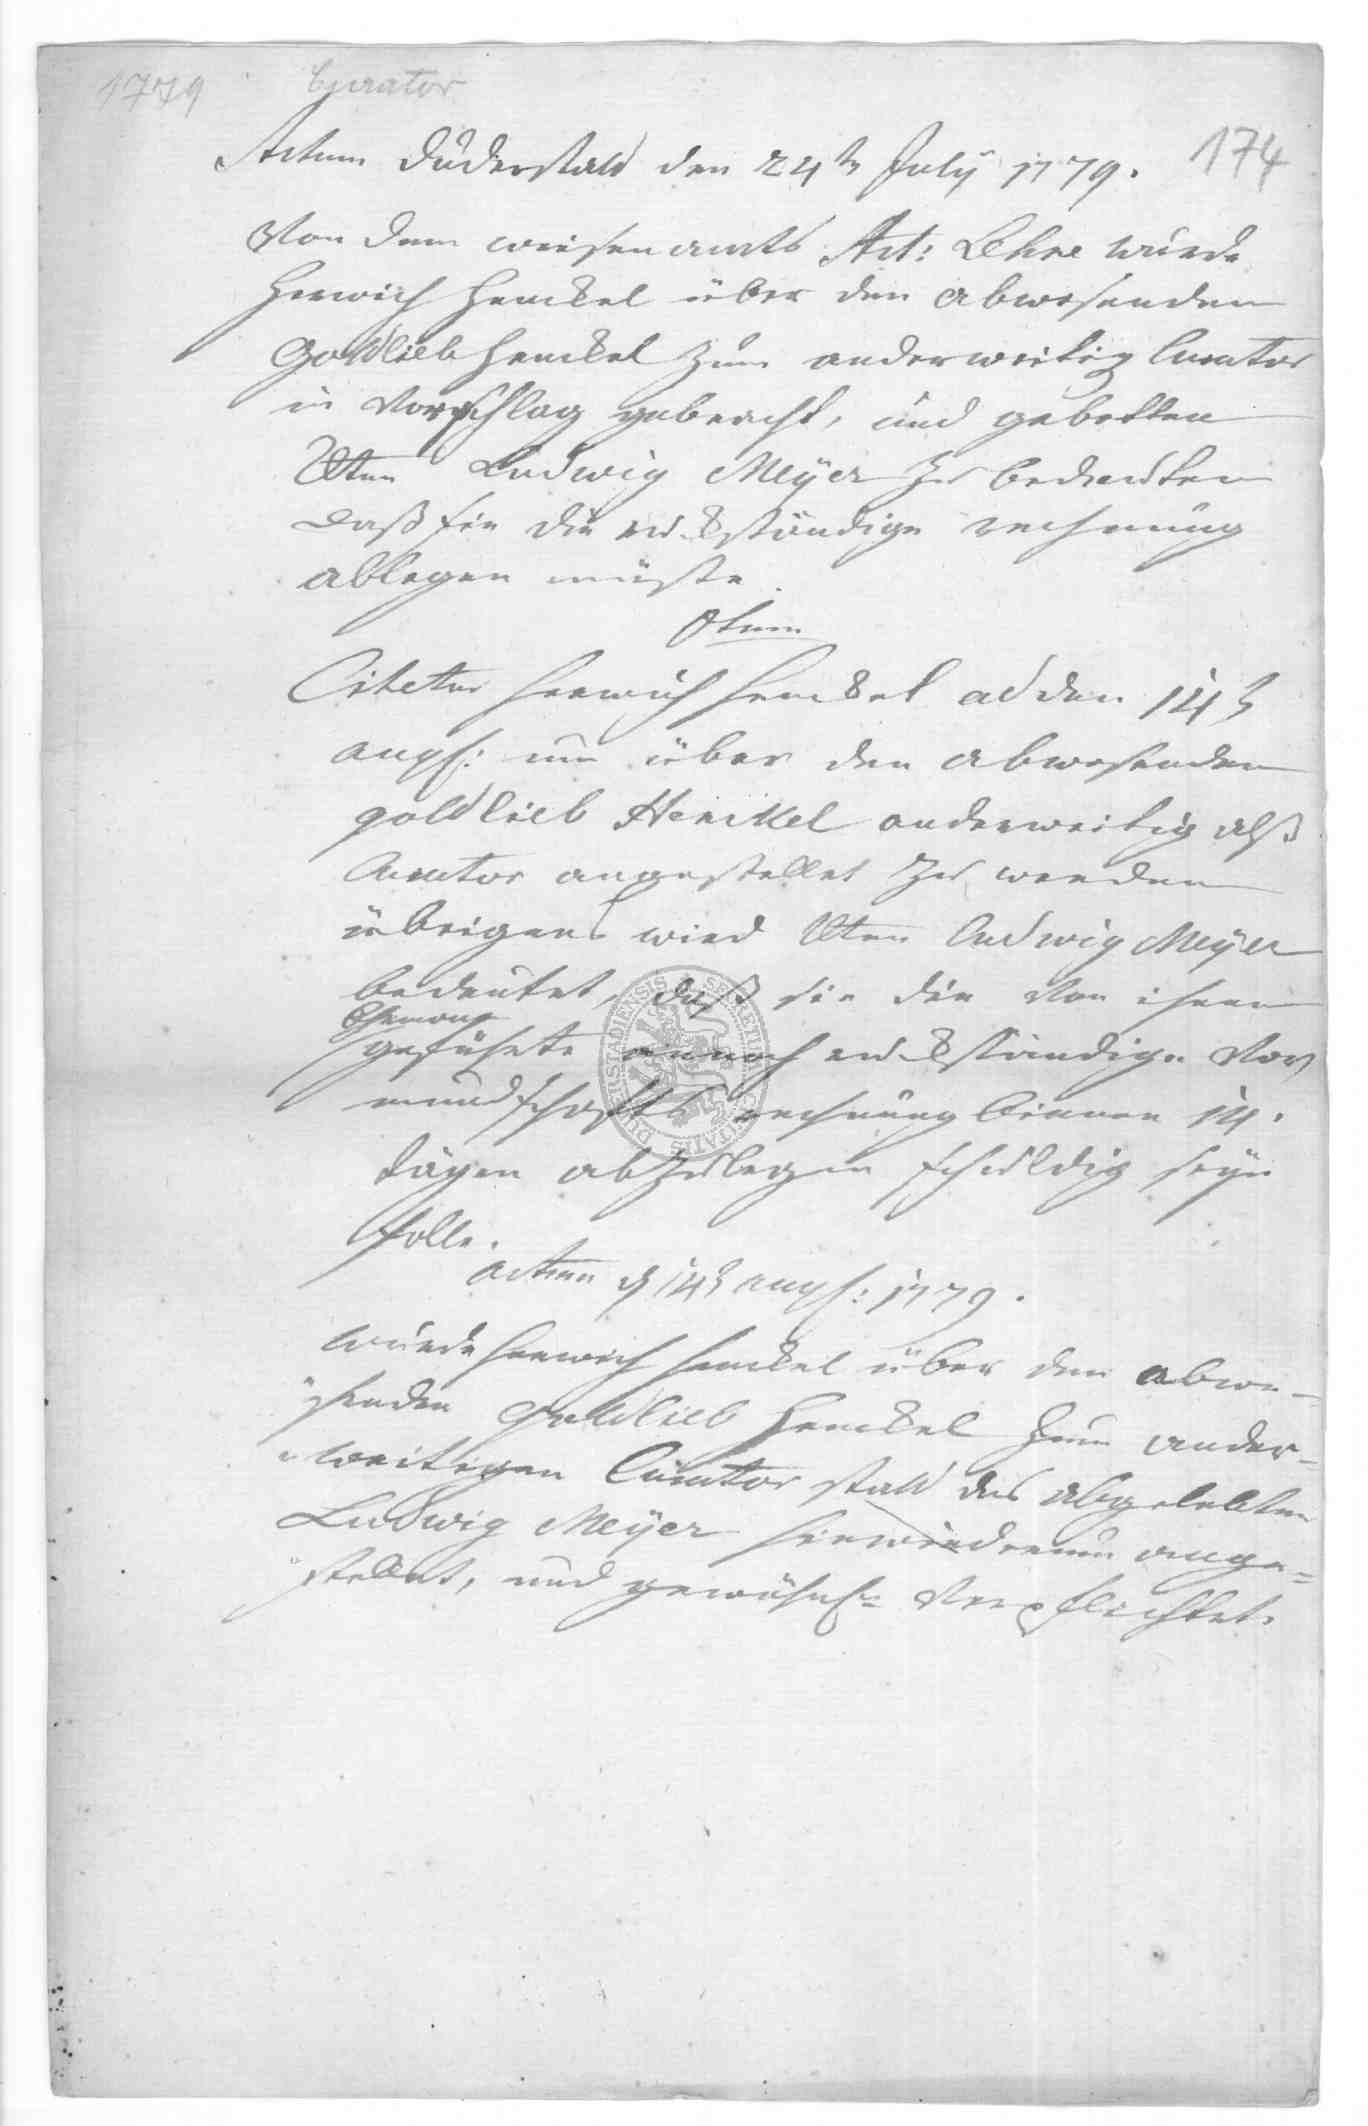 1779 Curator
174
Actum Duderstadt den 24t July 1779.
Von dem weisenamts Act: Lehne wurde
Henrich Henckel über den abwesenden
Gottlieb Henckel zum anderweitig Curator
in Vorschlag gebracht, und gebetten
Wttwe Ludwig Meÿer zu bedeuten
daß sie die rückständige rechnung
ablegen müste.
Citetur Henrich Henckel ad den 14t
aug: um über den abwesenden
gottlieb Henckel anderweitig alß
Curator angestellet zu werden
übrigens wird Wttwe Ludwig Meÿer
bedeutet, daß sie die von ihrem
Ehemann
geführte annoch rückständige Vor
mundschafts rechnung binnen 14.
tägen abzulegen schuldig seÿn
solle.
actum d 14t aug: 1779.
wurde Henrich Henckel über den abwe-
senden Gottlieb Henckel zum ander-
weitigen Curator statt des abgelebten
Ludwig Meÿer hinwiederum ange-
stellet, und verpflichtet.
SECRETUM CIVITATIS DUDERSTADIENSIS